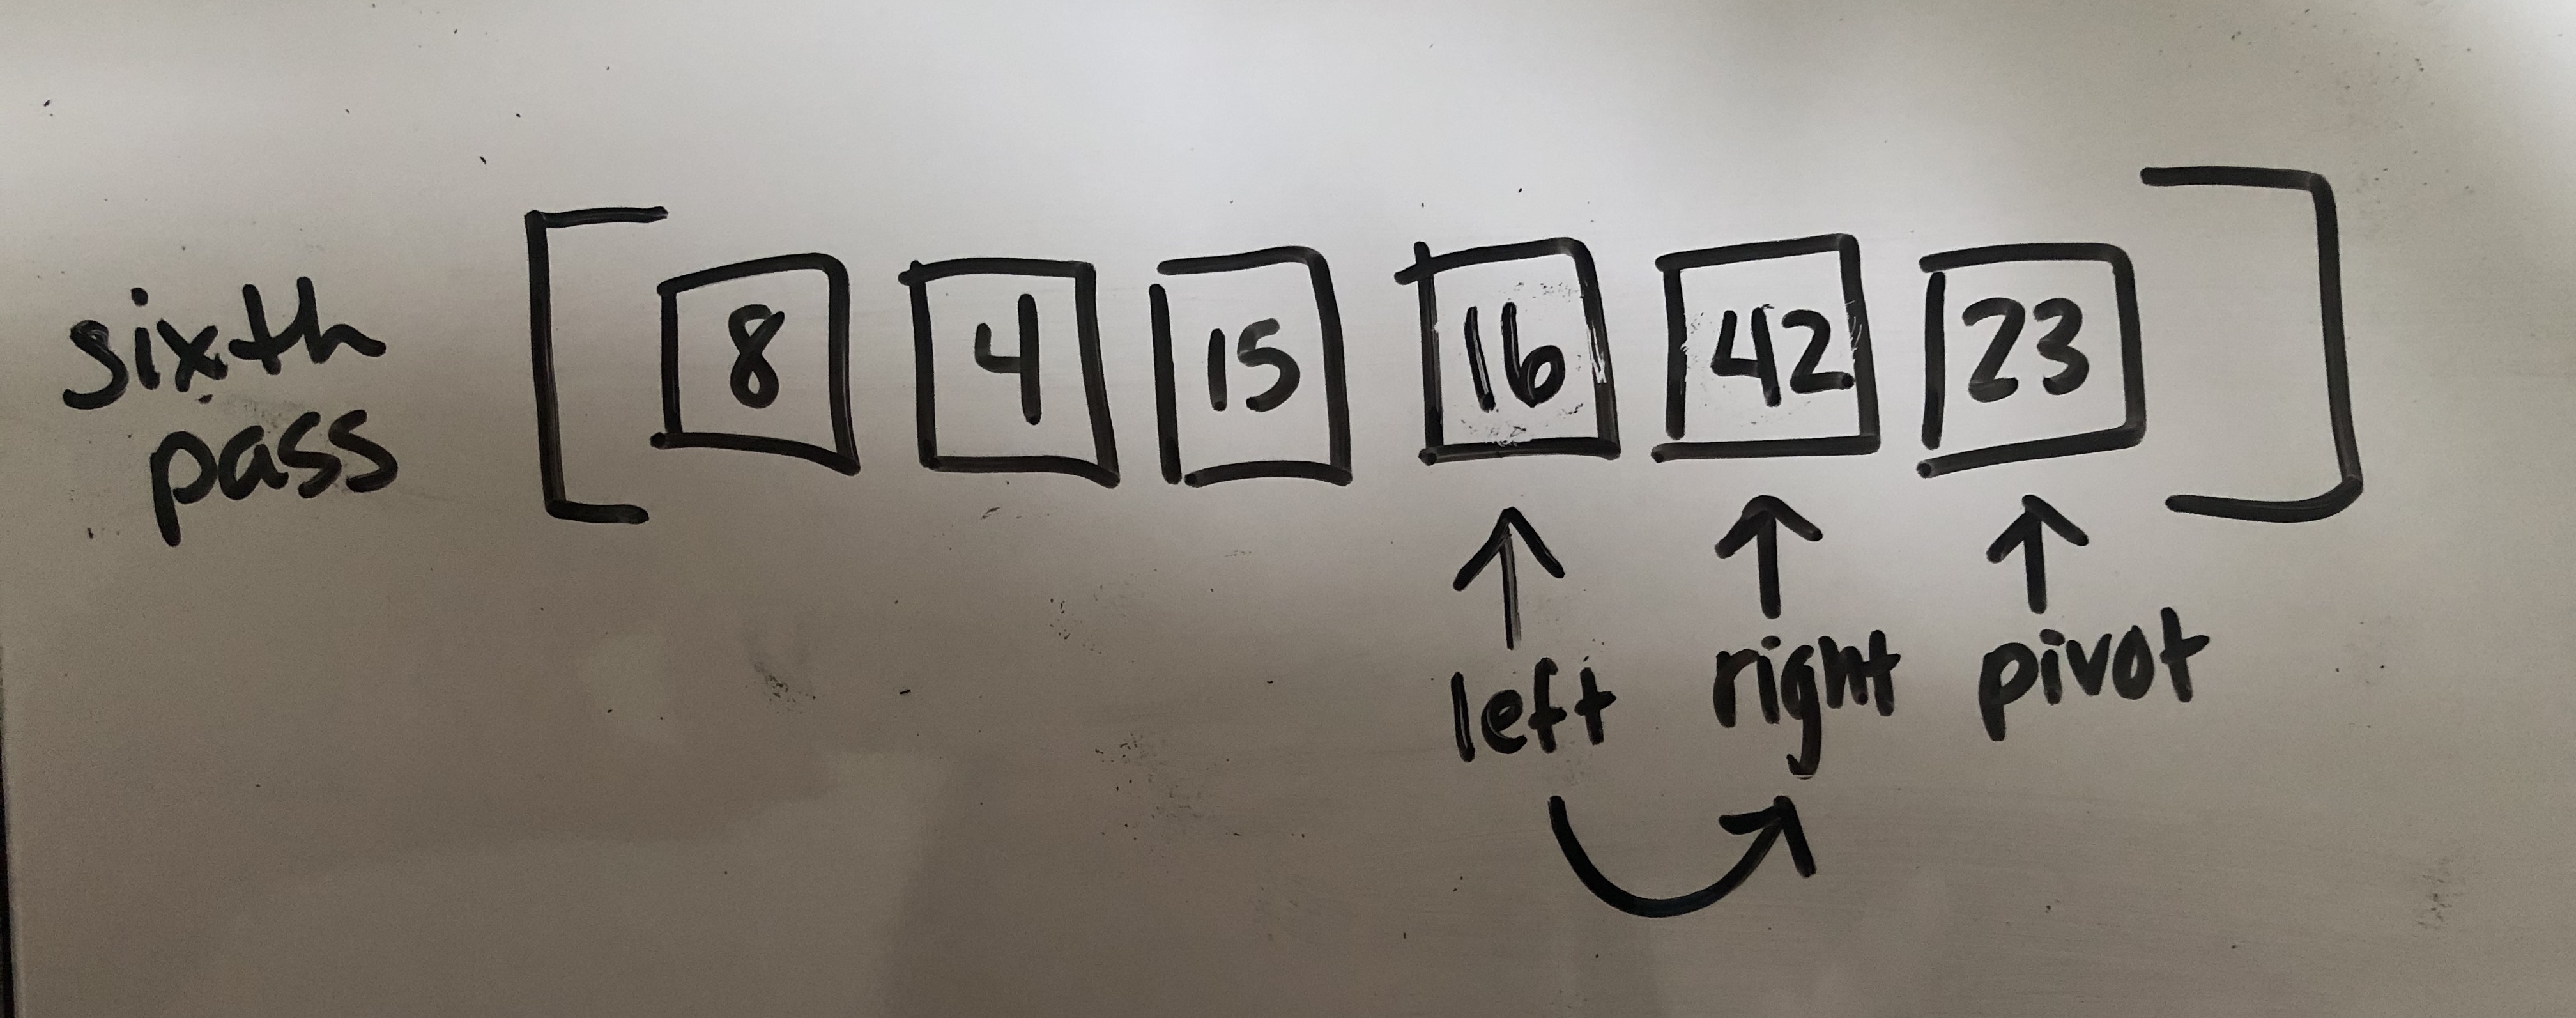 sixth
pass
[ 8 4 15 16 42 23 ]
left right pivot